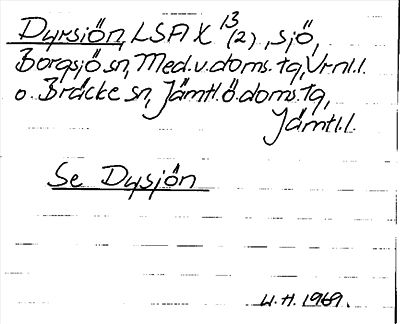 Dyrsjön, LSA X 13 (2), sjö,
Borgsjö sn, Med.v.doms.tg, Vrnl.l.
o. Bräcke sn, Jämtl.ö.doms.tg,
Jämtl.l.
Se Dysjön
W.H. 1969.